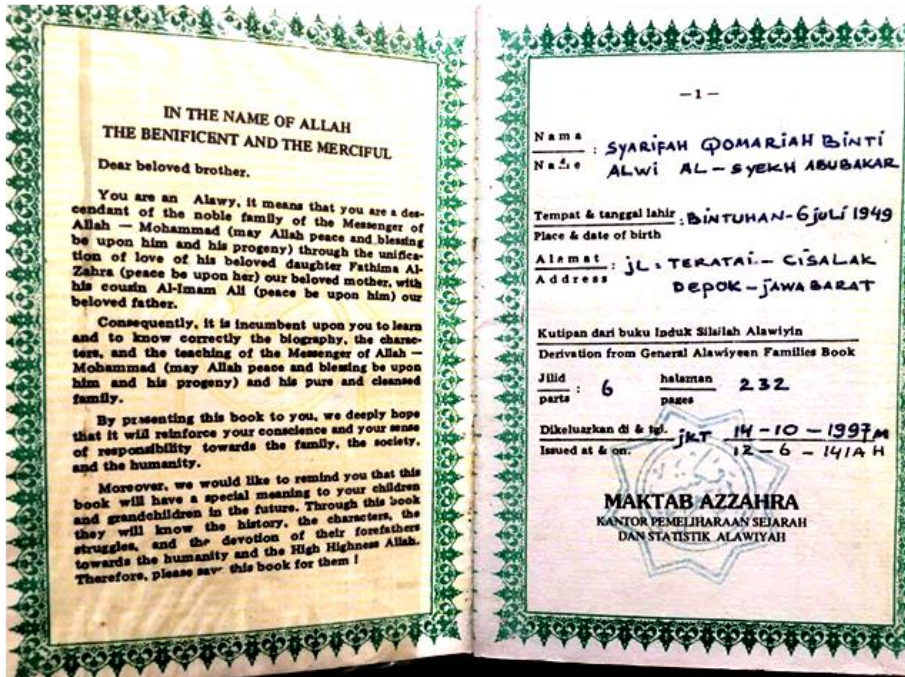 IN THE NAME OF ALLAH
THE BENIFICENT AND THE MERCIFUL
Dear beloved brother.
You are an Alawy, it means that you are a des-
cendant of the noble family of the Messenger of
Allah — Mohammad (may Allah peace and blessing
be upon him and his progeny) through the unifica-
tion of love of his beloved daughter Fathima Al-
Zahra (peace be upon her) our beloved mother, with
his cousin Al-Imam Ali (peace be upon him) our
beloved father.
Consequently, it is incumbent upon you to learn
and to know correctly the biography, the charac-
ters, and the teaching of the Messenger of Allah —
Mohammad (may Allah peace and blessing be upon
him and his progeny) and his pure and cleansed
family.
By presenting this book to you, we deeply hope
that it will reinforce your conscience and your sense
of responsibility towards the family, the society,
and the humanity.
Moreover, we would like to remind you that this
book will have a special meaning to your children
and grandchildren in the future. Through this book
they will know the history, the characters, the
struggles, and the devotion of their forefathers
towards the humanity and the High Highness Allah.
Therefore, please save this book for them !
— 1 —
Nama : SYARIFAH QOMARIAH BINTI
Name ALWI AL-SYEKH ABUBAKAR
Tempat & tanggal lahir : BINTUHAN - 6 juli 1949
Place & date of birth
Alamat : jL. TERATAI - CISALAK
Address DEPOK - jAWA BARAT
Kutipan dari buku Induk Silsilah Alawiyin
Derivation from General Alawiyeen Families Book
Jilid : 6 halaman 232
parts pages
Dikeluarkan di & tgl. jKT 14-10-1997 M
Issued at & on. 12-6-
H
MAKTAB AZZAHRA
KANTOR PEMELIHARAAN SEJARAH
DAN STATISTIK ALAWIYAH